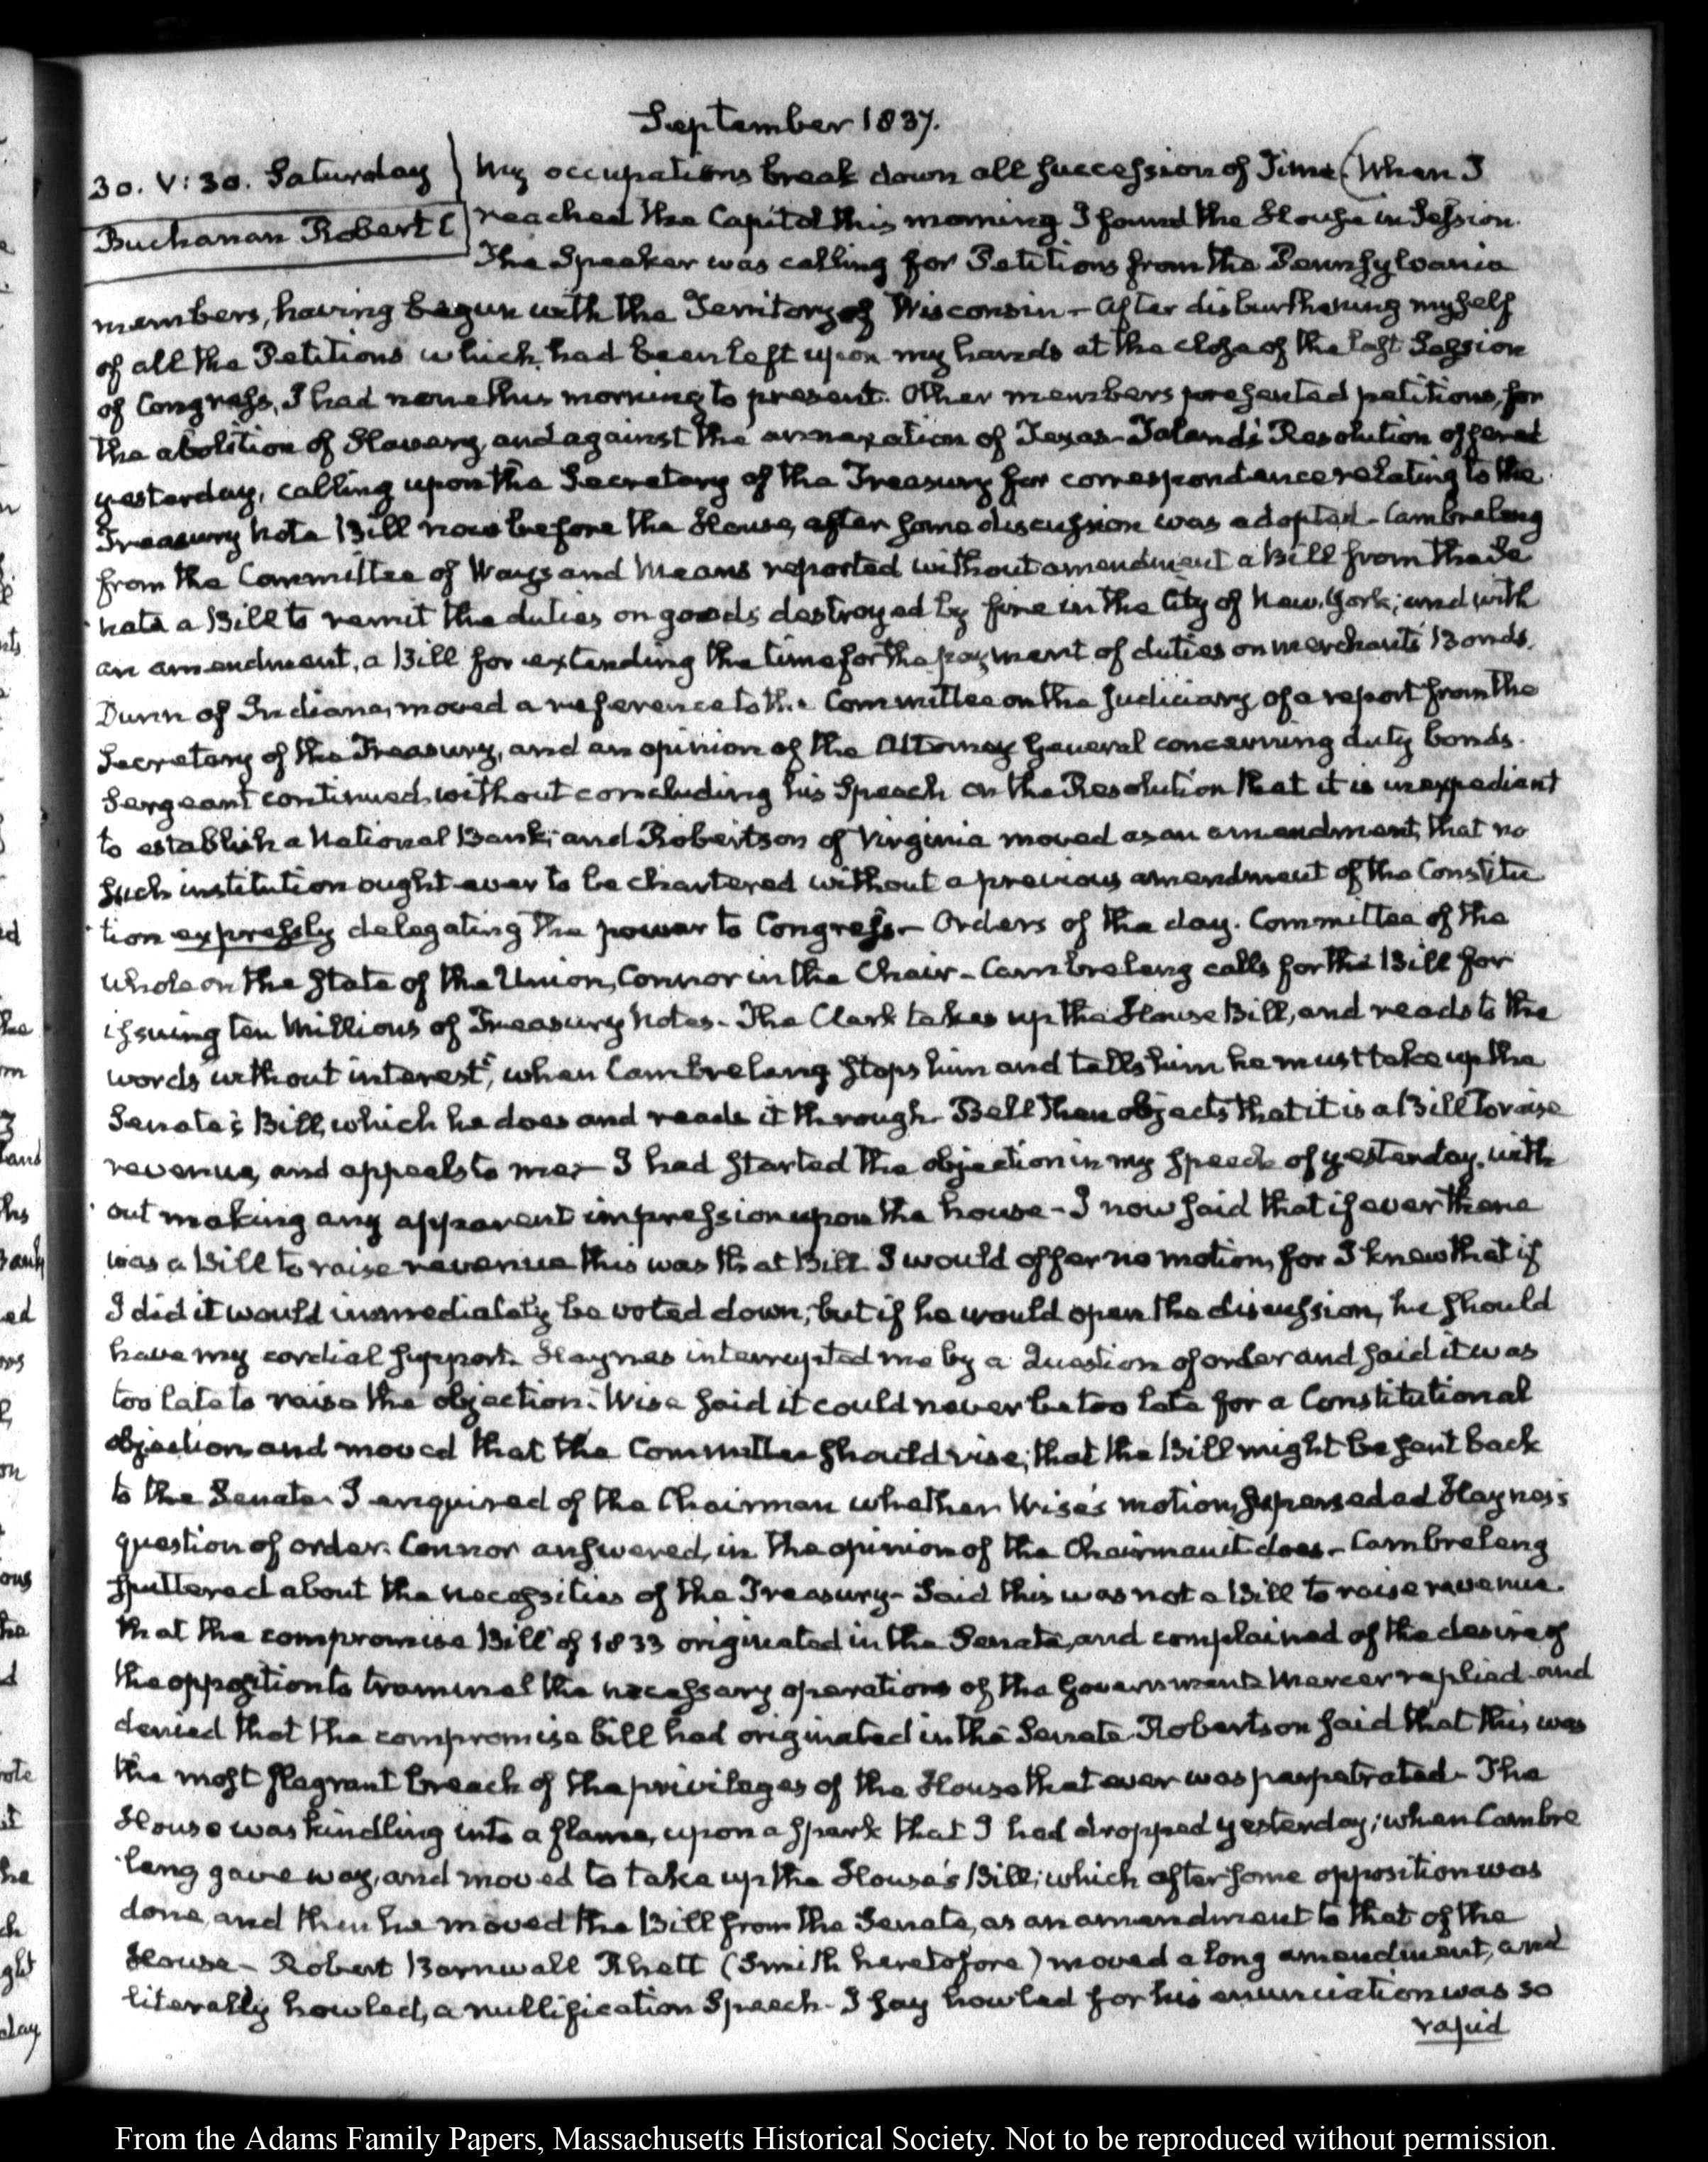 September 1837.
30. V: 30. Saturday
Buchanan Robert C
My occupations break down all succession of Time. (When I
reached the Capitol this morning I found the House in Session.
The Speaker was calling for Petitions from the Pennsylvania
members, having begun with the Territory of Wisconsin – After disburthening myself
of all the Petitions which had been left upon my hands at the close of the last Session
of Congress, I had none this morning to present. Other members presented petitions, for
the abolition of Slavery, and against the annexation of Texas – Taland's Resolution offered
yesterday, calling upon the Secretary of the Treasury for correspondence relating to the
Treasury Note Bill now before the House, after some discussion was adopted – Cambreleng
from the Committee of Ways and Means reported without amendment a Bill from the Se
nate a Bill to remit the duties on goods destroyed by fire in the City of New-York; and with
an amendment, a Bill for extending the time for the payment of duties on merchants' Bonds.
Dunn of Indiana, moved a reference to the Committee on the Judiciary of a report from the
Secretary of the Treasury, and an opinion of the Attorney General concerning duty bonds.
Sergeant continued, without concluding his Speech on the Resolution that it is inexpedient
to establish a National Bank; and Robertson of Virginia moved as an amendment, that no
such institution ought ever to be chartered without a previous amendment of the Constitu
tion expressly delegating the power to Congress – Orders of the day. Committee of the
whole on the State of the Union, Connor in the Chair – Cambreleng calls for the Bill for
issuing ten Millions of Treasury Notes – The Clerk takes up the House Bill, and reads to the
words "without interest", when Cambreleng stops him and tells him he must take up the
Senate's Bill, which he does and reads it through – Bell then objects that it is a Bill to raise
revenue, and appeals to me – I had started the objection in my speech of yesterday, with
out making any apparent impression upon the house – I now said that if ever there
was a Bill to raise revenue this was that Bill. I would offer no motion, for I knew that if
I did it would immediately be voted down; but if he would open the discussion, he should
have my cordial support. Haynes interrupted me by a Question of order and said it was
too late to raise the objection. Wise said it could never be too late for a Constitutional
objection, and moved that the Committee should rise, that the Bill might be sent back
to the Senate. I enquired of the Chairman whether Wise's motion, superseded Haynes's
question of order. Connor answered, in the opinion of the Chairman it does – Cambreleng
sputtered about the necessities of the Treasury – Said this was not a Bill to raise revenue.
that the compromise Bill of 1833 originated in the Senate, and complained of the desire of
the opposition to trammel the necessary operations of the Government – Mercer replied and
denied that the compromise bill had originated in the Senate – Robertson said that this was
the most flagrant breach of the privileges of the House that ever was perpetrated – The
House was kindling into a flame, upon a spark that I had dropped yesterday; when Cambre
leng gave way, and moved to take up the House's Bill; which after some opposition was
done, and then he moved the Bill from the Senate, as an amendment to that of the
House – Robert Barnwall Rhett (Smith heretofore) moved a long amendment, and
literally howled, a nullification Speech – I say howled for his enunciation was so
rapid
From the Adams Family Papers, Massachusetts Historical Society. Not to be reproduced without permission.